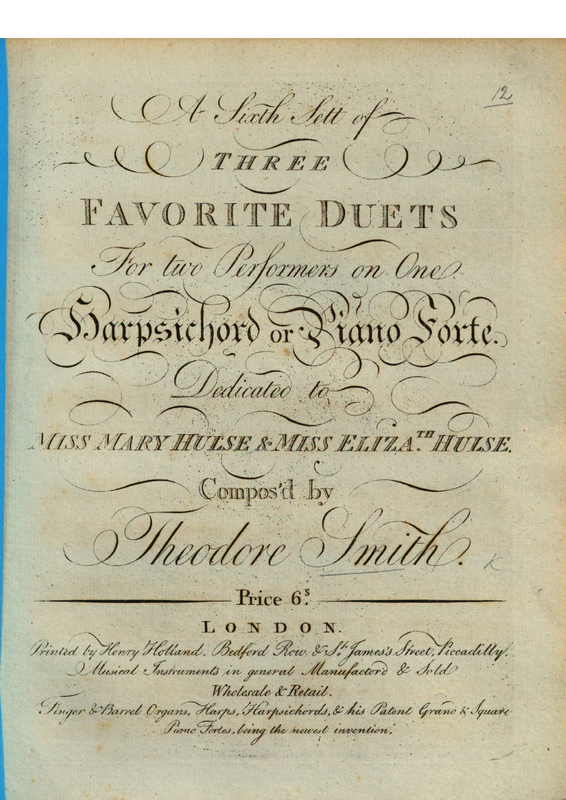 12
A Sixth Sett of
THREE
FAVORITE DUETS
For two Performers on One
Harpsichord or Piano Forte.
Dedicated to
MISS MARY HULSE & MISS ELIZA.TH HULSE.
Compos'd by
Theodore Smith.
K
Price 6.s
LONDON.
Printed by Henry Holland. Bedford Row. & St. James's Street, Piccadilly.
Musical Instruments in general Manufactord & Sold
Wholesale & Retail.
Finger & Barrel Organs, Harps, Harpsichords, & his Patent Grand & Square
Piano Fortes, being the newest invention.